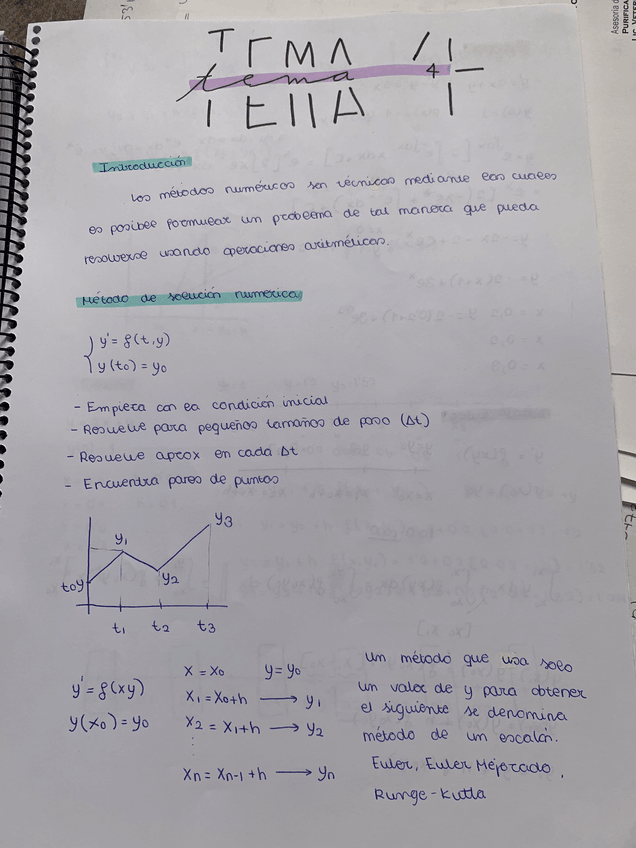 TEMA 4
tema 4
Introducción
Los métodos numéricos son técnicas mediante los cuales
es posible formular un problema de tal manera que pueda
resolverse usando operaciones aritméticas.
Método de solución numérica
y' = f(t,y)
y(t0) = y0
- Empieza con la condición inicial
- Resuelve para pequeños tamaños de paso (Δt)
- Resuelve aprox en cada Δt
- Encuentra pares de puntos
y1
y2
y3
t0y
t1 t2 t3
y' = f(xy)
y(x0) = y0
x = x0 y = y0
x1 = x0+h → y1
x2 = x1+h → y2
⋮
xn = xn-1+h → yn
un método que usa solo
un valor de y para obtener
el siguiente se denomina
método de un escalón.
Euler, Euler Mejorado,
Runge-Kutta
Asesoría d
PURIFICA